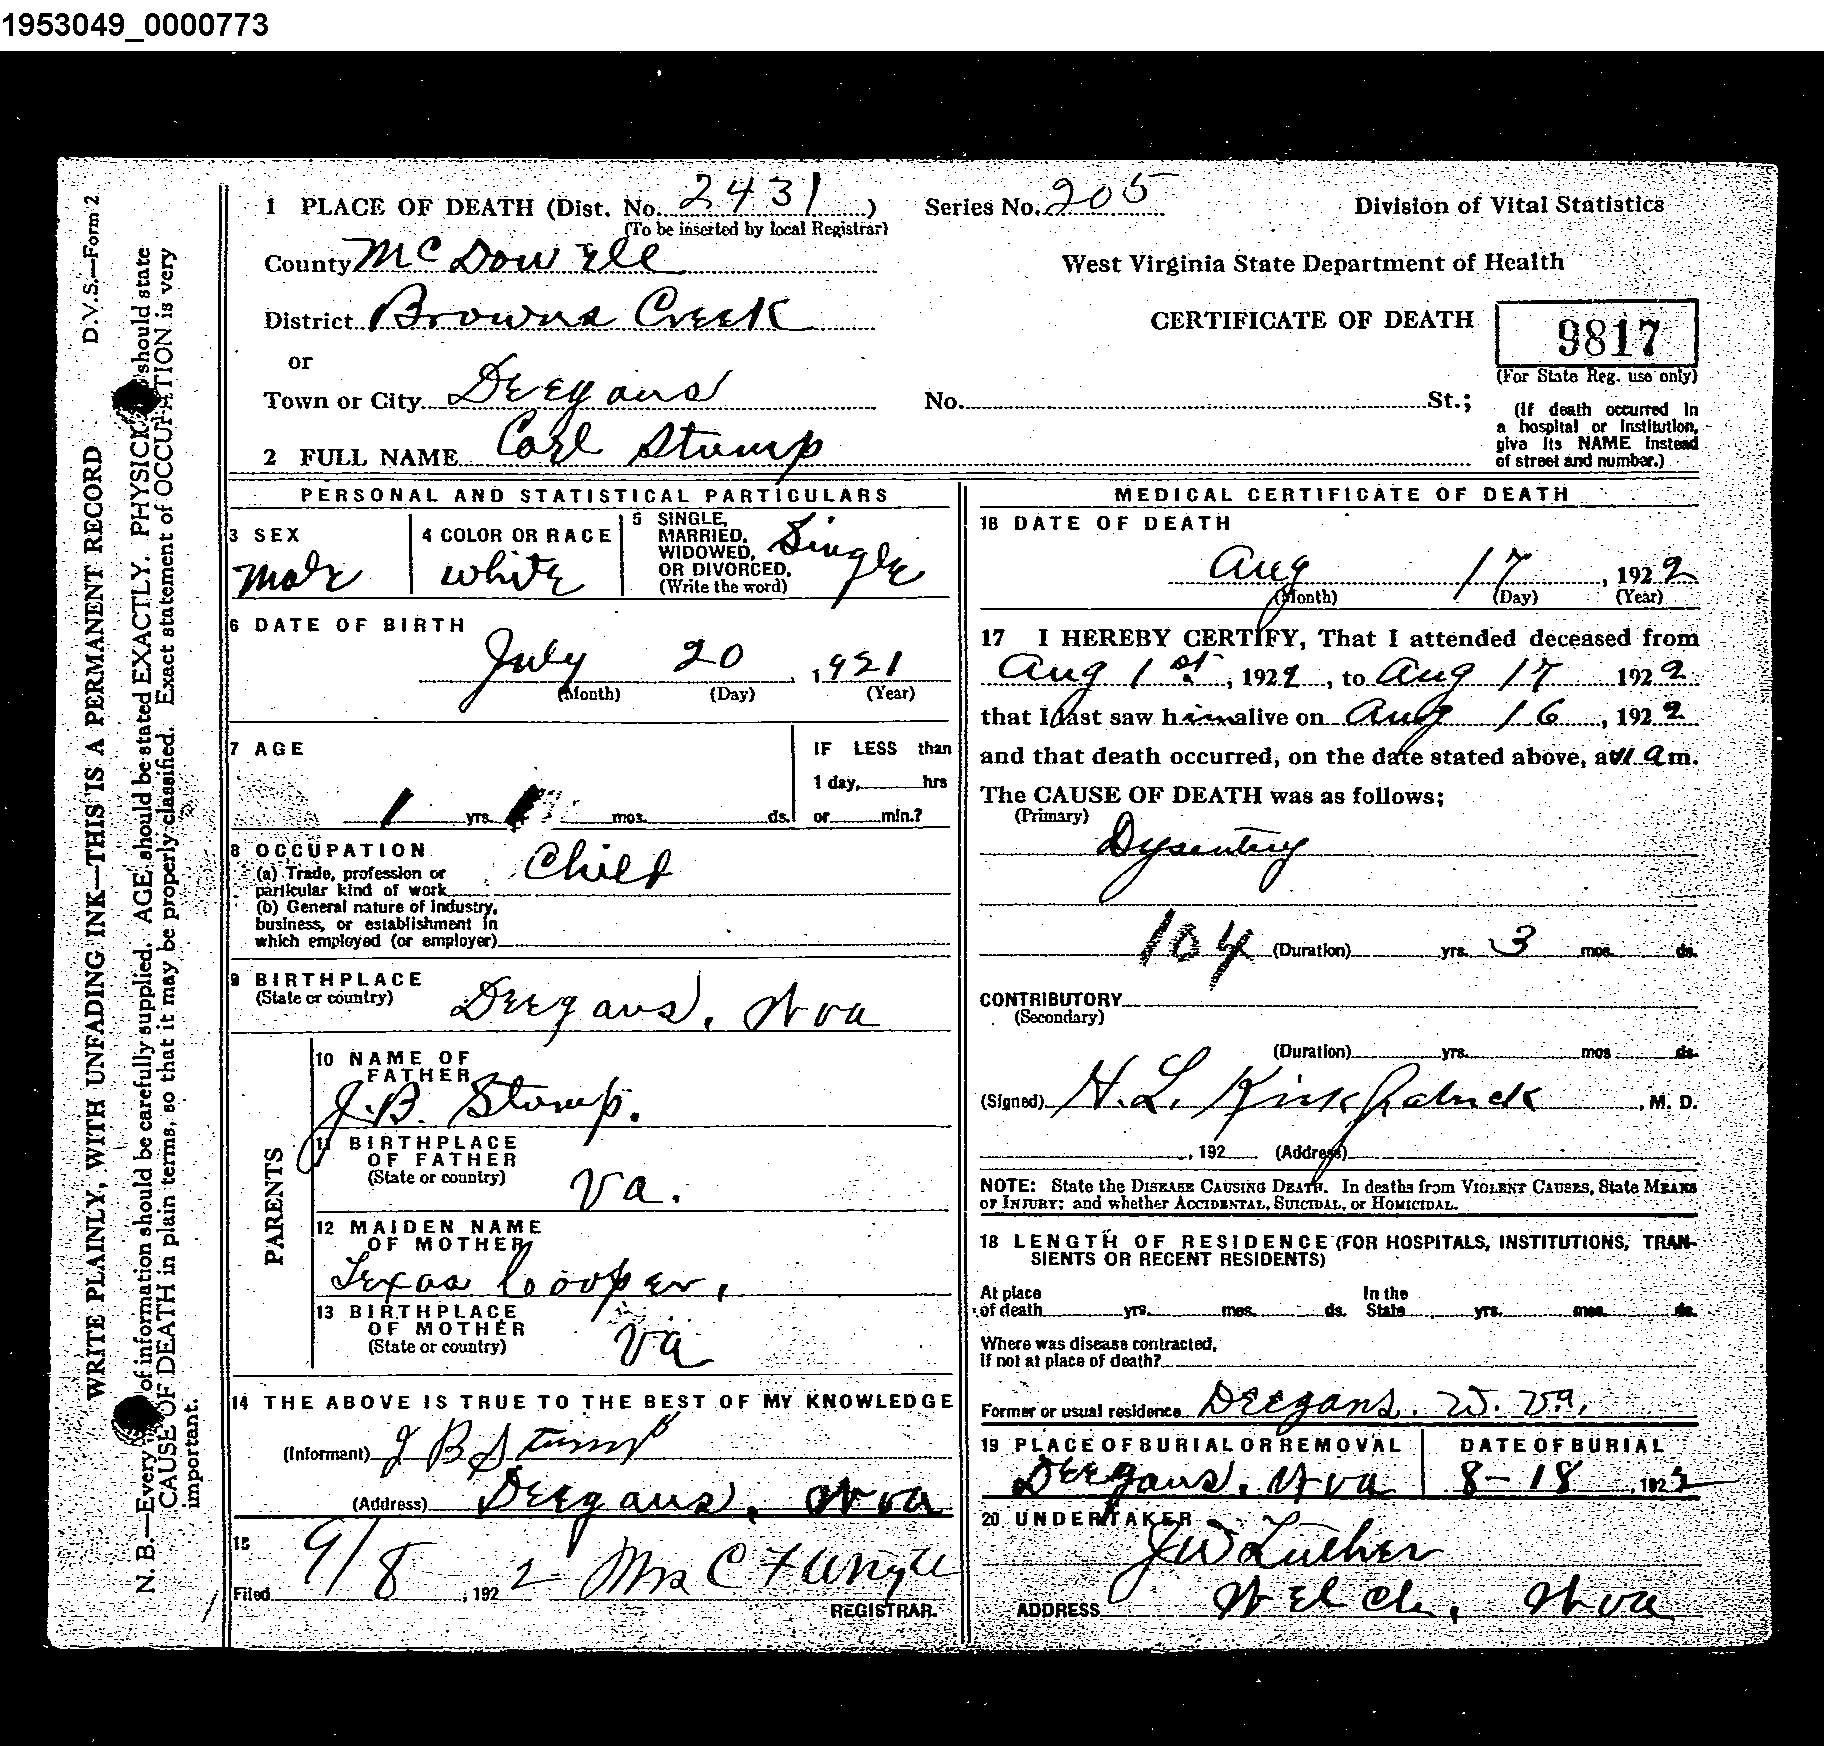 1953049_0000773
D.V.S.—Form 2
WRITE PLAINLY, WITH UNFADING INK—THIS IS A PERMANENT RECORD
N. B.—Every of information should be carefully supplied. AGE should be stated EXACTLY. PHYSIC should state
CAUSE OF DEATH in plain terms, so that it may be properly classified. Exact statement of OCCUPATION is very
important.
1 PLACE OF DEATH (Dist. No. 2431 ) Series No. 205 Division of Vital Statistics
(To be inserted by local Registrar)
County McDowell West Virginia State Department of Health
District Browns Creek CERTIFICATE OF DEATH 9817
or (For State Reg. use only)
Town or City Deegans No. St.; (If death occurred in
a hospital or institution,
give its NAME instead
of street and number.)
2 FULL NAME Carl Stump
PERSONAL AND STATISTICAL PARTICULARS
3 SEX Male
4 COLOR OR RACE white
5 SINGLE,
MARRIED,
WIDOWED,
OR DIVORCED.
(Write the word) Single
6 DATE OF BIRTH
July 20, 1921
(Month) (Day) (Year)
7 AGE
1 yrs. mos. ds.
IF LESS than
1 day, hrs
or min.?
8 OCCUPATION Child
(a) Trade, profession or
particular kind of work
(b) General nature of Industry,
business, or establishment in
which employed (or employer)
9 BIRTHPLACE
(State or country) Deegans, Wva
PARENTS
10 NAME OF
FATHER
J.B. Stump.
11 BIRTHPLACE
OF FATHER
(State or country) Va.
12 MAIDEN NAME
OF MOTHER
Texas Cooper,
13 BIRTHPLACE
OF MOTHER
(State or country) Va
14 THE ABOVE IS TRUE TO THE BEST OF MY KNOWLEDGE
(Informant) J B Stump
(Address) Deegans, Wva
15
Filed 9/8, 1922 Mrs C F
REGISTRAR.
MEDICAL CERTIFICATE OF DEATH
16 DATE OF DEATH
Aug 17, 1922
(Month) (Day) (Year)
17 I HEREBY CERTIFY, That I attended deceased from
Aug 1st, 1922, to Aug 17 1922
that I last saw him alive on Aug 16, 1922
and that death occurred, on the date stated above, at 11 a m.
The CAUSE OF DEATH was as follows;
(Primary)
Dysentery
104 (Duration) yrs. 3 mos. ds.
CONTRIBUTORY
(Secondary)
(Duration) yrs. mos ds.
(Signed) H. L. Kirkpatrick, M. D.
, 192 (Address)
NOTE: State the DISEASE CAUSING DEATH. In deaths from VIOLENT CAUSES, State MEANS
OF INJURY; and whether ACCIDENTAL, SUICIDAL, or HOMICIDAL.
18 LENGTH OF RESIDENCE (FOR HOSPITALS, INSTITUTIONS, TRAN-
SIENTS OR RECENT RESIDENTS)
At place In the
of death yrs. mos. ds. State yrs. mos. ds.
Where was disease contracted,
If not at place of death?
Former or usual residence Deegans. W. Va.
19 PLACE OF BURIAL OR REMOVAL DATE OF BURIAL
Deegans, Wva 8-18, 1922
20 UNDERTAKER
J W Luther
ADDRESS Welch, Wva